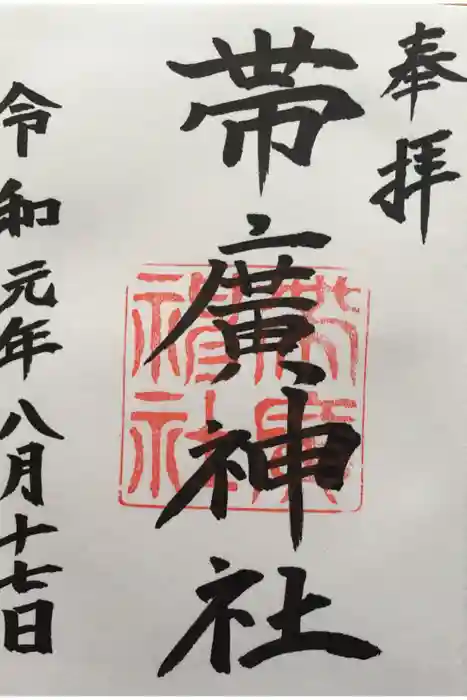 奉拝
帯廣神社
帯廣神社
令和元年八月十七日